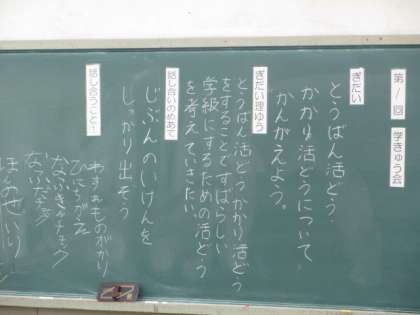 第1回 学きゅう会
ぎだい
とうばん活どう、
かかり活どうについて
かんがえよう。
ぎだい理ゆう
とうばん活どうかかり活どう
をすることですばらしい
学級にするための活どう
を考えていきたい
話し合いのめあて
じぶんのいけんを
しっかり出そう
話し合うこと1
わすれものがかり
なふきんチェック
ほんのせいり